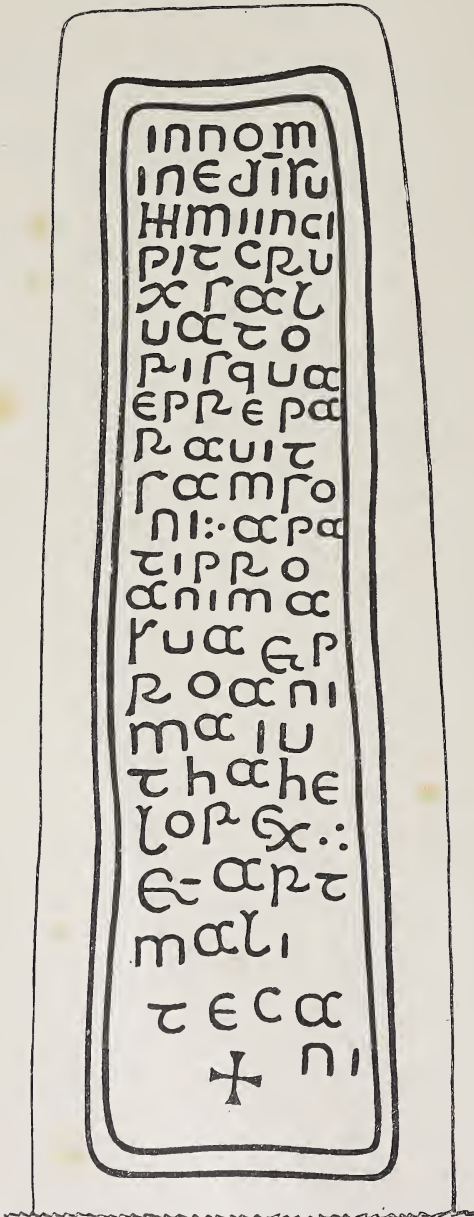 innom
inedīsu
mmiinci
pitcru
xsal
uato
risqua
eprepa
rauit
samso
ni:·apa
tipro
anima
sua &p
roani
maiu
thahe
lorex:·
& art
mali
teca
ni
+